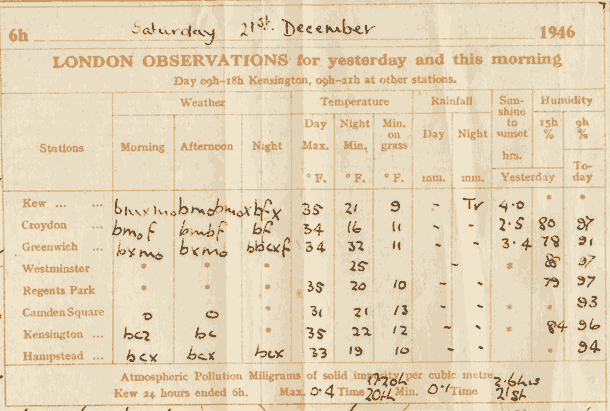 6h Saturday 21st. December 1946
LONDON OBSERVATIONS for yesterday and this morning
Day 09h-18h Kensington, 09h-21h at other stations.
Stations Weather Temperature Rainfall Sun-shine to sunset hrs. Humidity
Morning Afternoon Night Day Max. Night Min. Min. on grass Day Night 15h % 9h %
° F. ° F. ° F. mm. mm. Yesterday To-day
Kew ... ... bfx 35 21 9 - Tr 4.0 * *
Croydon ... bmof bmbf bf 34 16 11 - - 2.5 80 97
Greenwich ... bxmo bxmo bbcxf 34 32 11 - - 3.4 78 91
Westminster * * * 25 - * 85 97
Regents Park * * * 35 20 10 - - 79 97
Camden Square o o * 31 21 13 - - * * 93
Kensington ... bcz bc * 35 22 12 - - 84 96
Hampstead ... bcx bcx bcx 33 19 10 - - * 94
Atmospheric Pollution Miligrams of solid impurity per cubic metre
Kew 24 hours ended 6h. Max. 0.4 Time 20th Min. 0.1 Time 21st